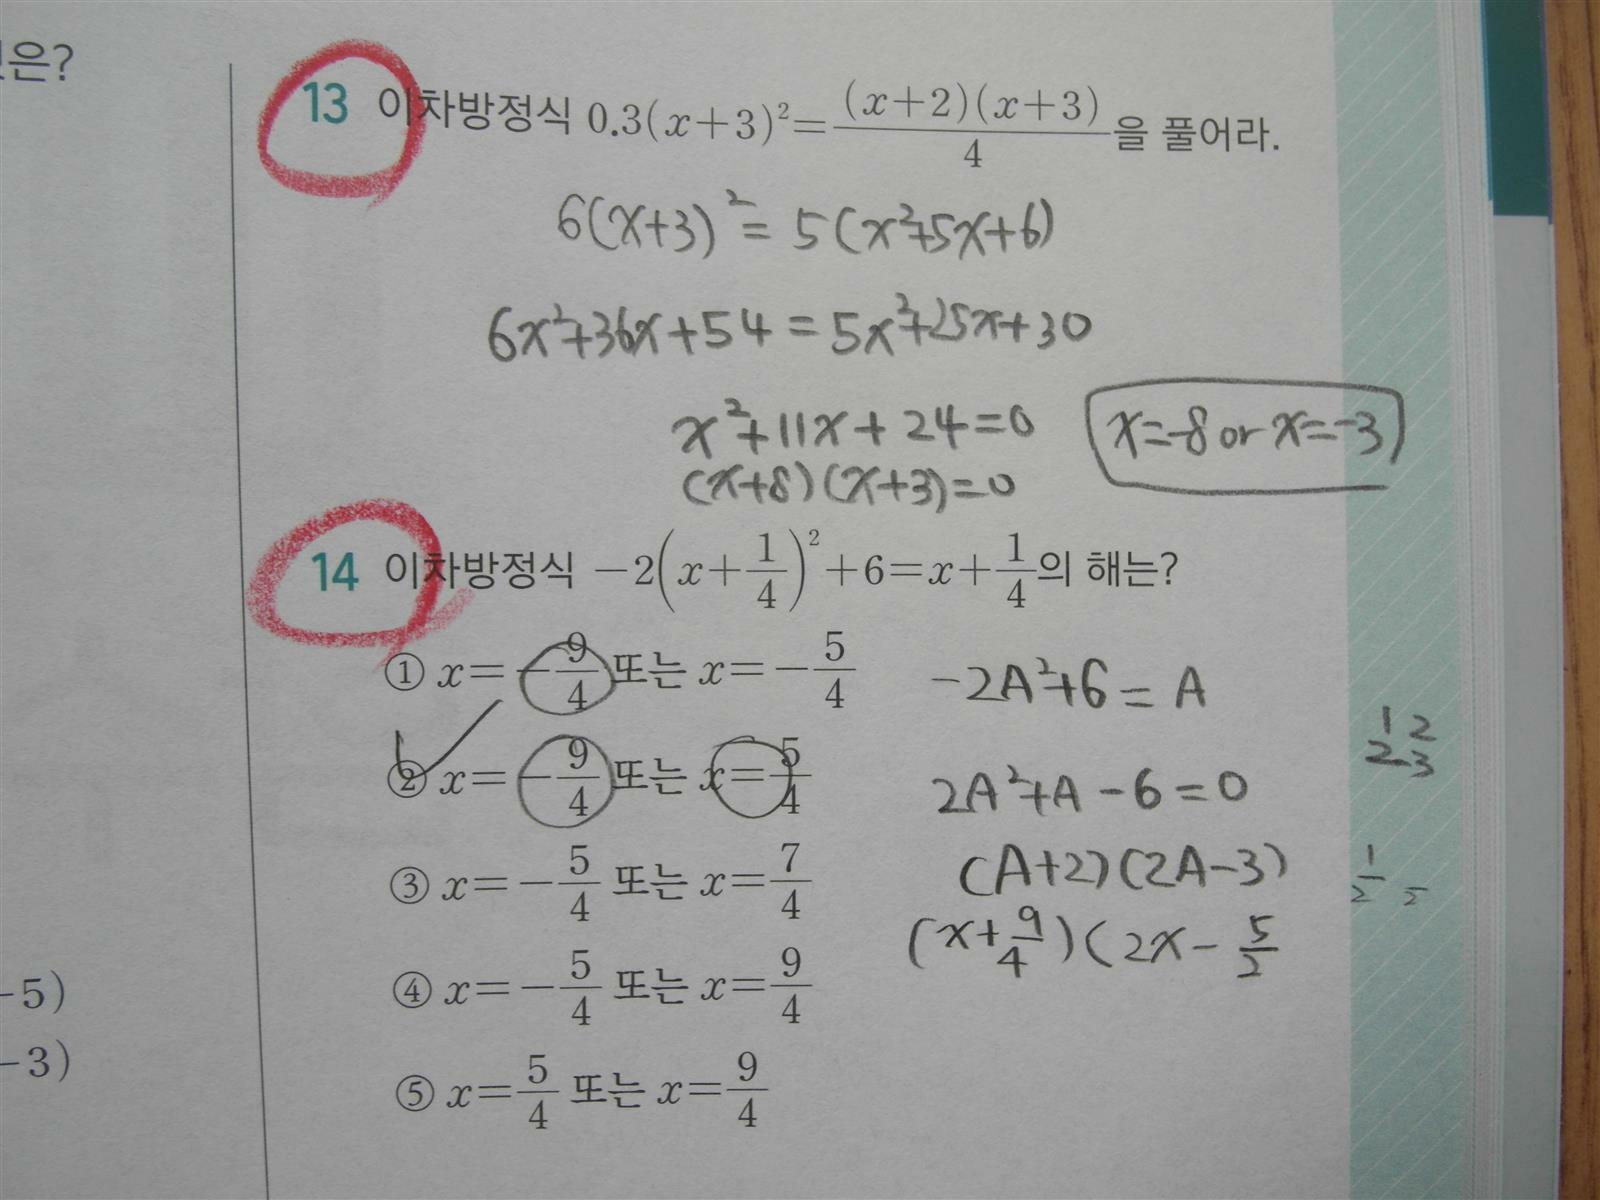 은?
13 이차방정식 0.3(x+3)²=(x+2)(x+3)/4을 풀어라.
6(x+3)²=5(x²+5x+6)
6x²+36x+54=5x²+25x+30
x²+11x+24=0
(x+8)(x+3)=0
x=-8 or x=-3
14 이차방정식 -2(x+1/4)²+6=x+1/4의 해는?
① x=-9/4 또는 x=-5/4
② x=-9/4 또는 x=5/4
③ x=-5/4 또는 x=7/4
④ x=-5/4 또는 x=9/4
⑤ x=5/4 또는 x=9/4
-2A²+6=A
2A²+A-6=0
(A+2)(2A-3)
(x+9/4)(2x-5/2
1 2
2 -3
1/2 2
-5)
-3)